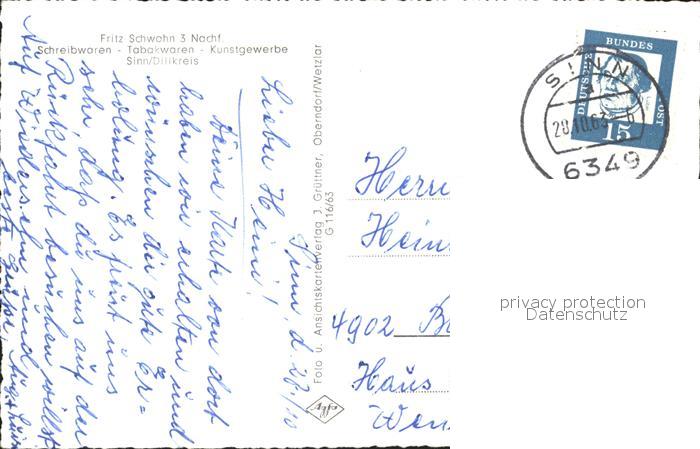 Fritz Schwahn 3 Nachf.
Schreibwaren - Tabakwaren - Kunstgewerbe
Sinn/Dillkreis
Sinn, d. 27/10
Lieber Heini!
Deine Karte von dort
haben wir erhalten und
wünschen dir gute Er=
holung. Es freut uns
sehr, daß du uns auf der
Rückfahrt besuchen willst
Auf Wiedersehn und
Foto u. Ansichtskartenverlag J. Grüttner, Oberndorf/Wetzlar
G 116/63
Agfa
DEUTSCHE BUNDESPOST
15
SINN
28.10.63
6349
Herrn
Hein
4902 B
Haus
privacy protection
Datenschutz